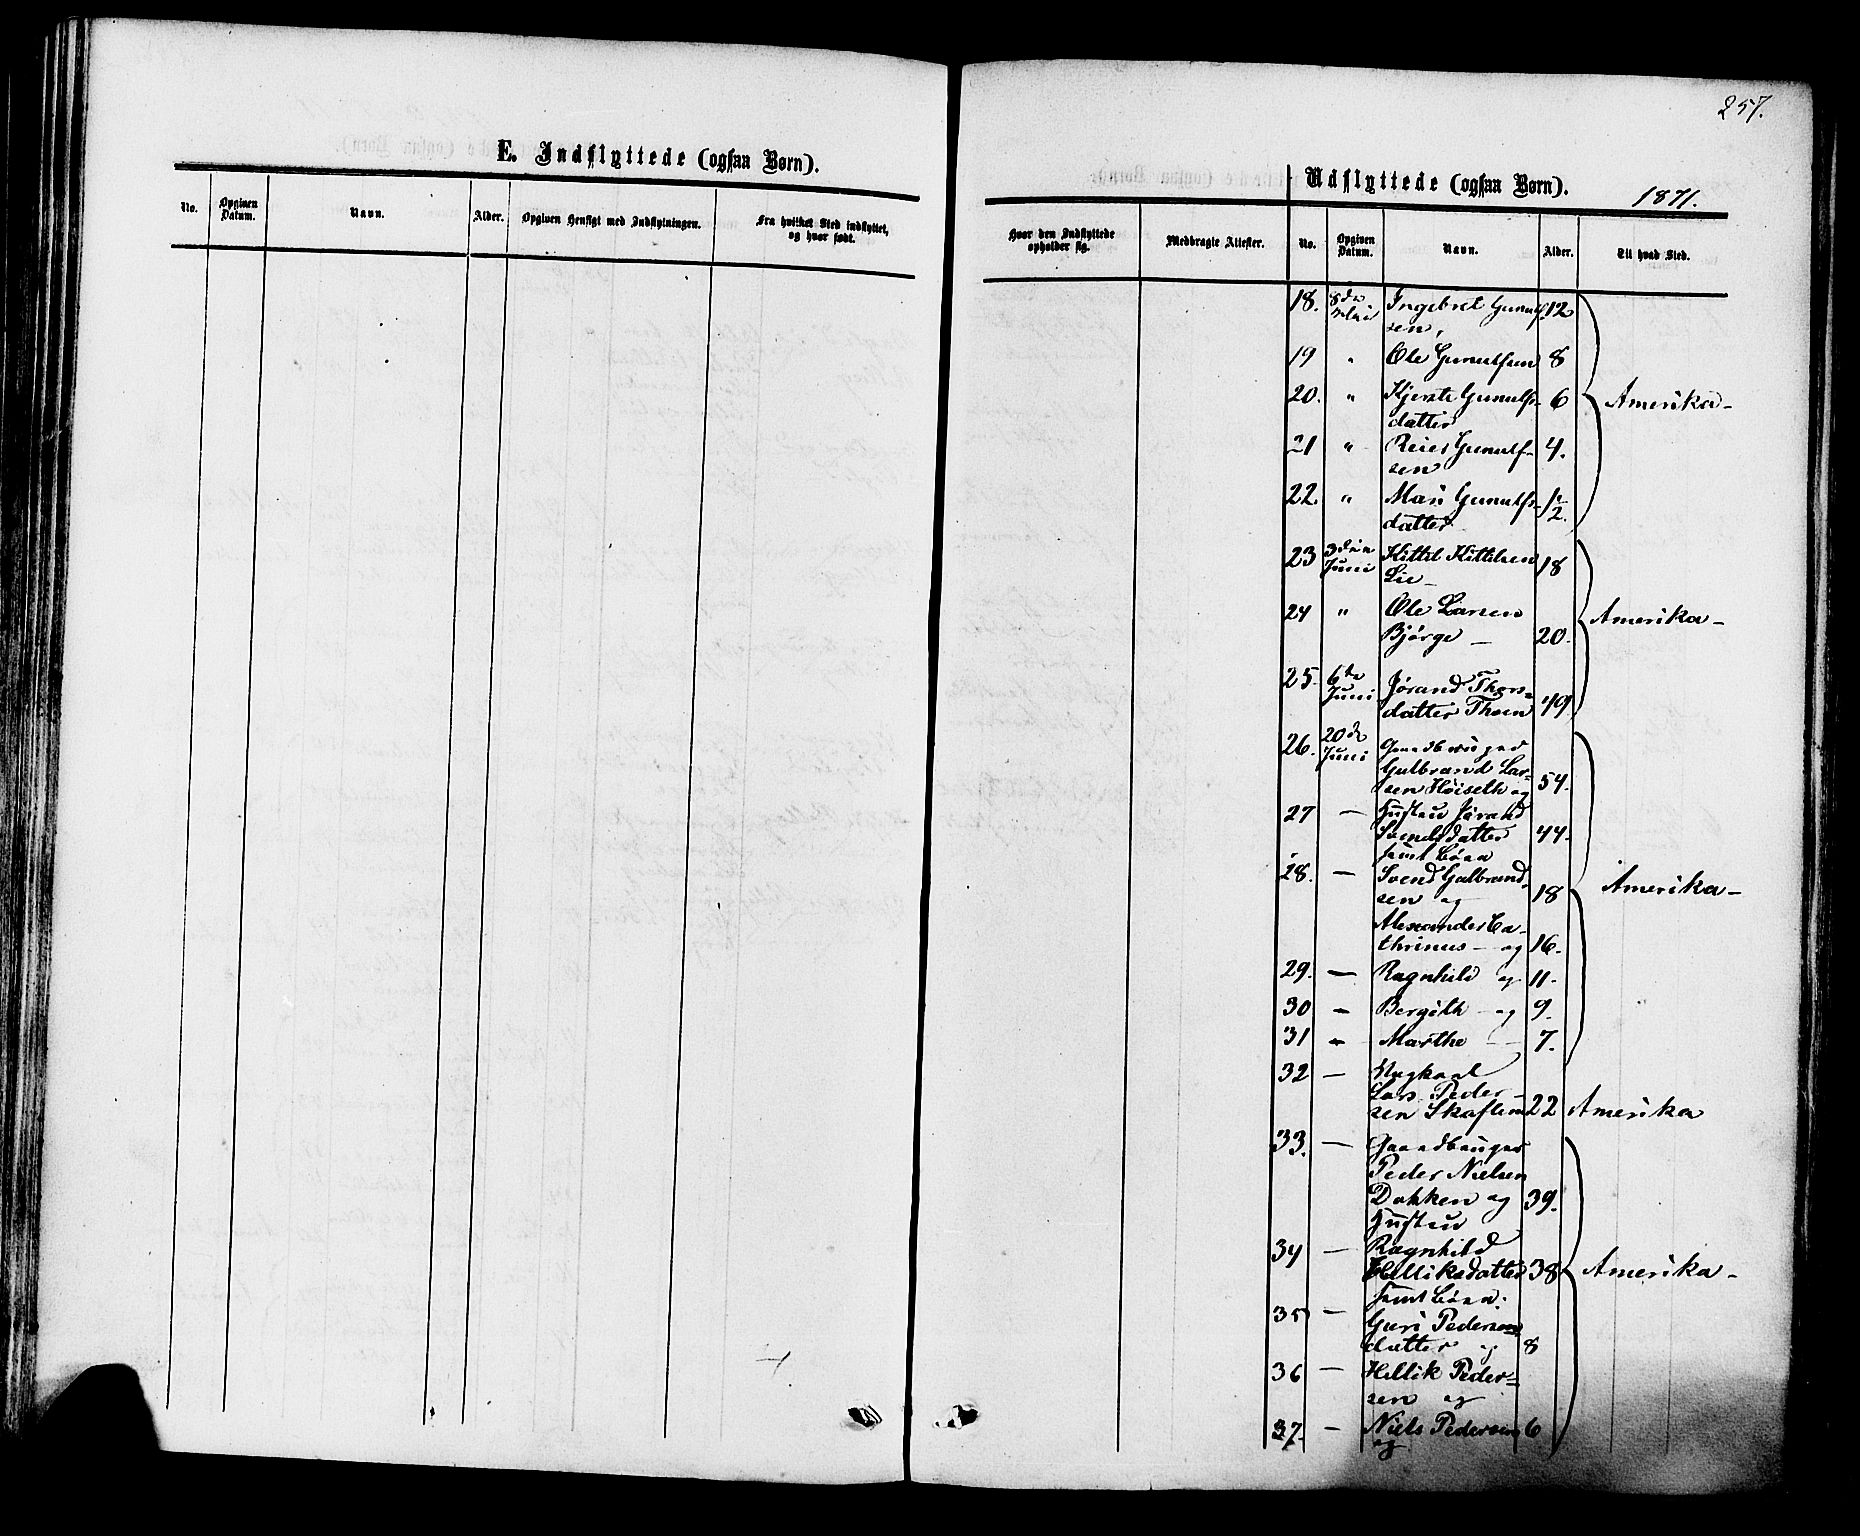 257.
E. Indflyttede (ogsaa Børn).
No.
Opgiven Datum.
Navn.
Alder.
Opgiven Hensigt med Indflytningen.
Fra hvilket Sted indflyttet, og hvor født.
Udflyttede (ogsaa Børn). 1871.
Hvor den Indflyttede opholder sig.
Medbragte Attester.
No.
Opgiven Datum.
Navn.
Alder.
Til hvad Sted.
18. 8de Mai Ingebret Gunulf- 12
sen,
19 " Ole Gunulfsen 8
20. " Kjersti Gunulfs- 6 Amerika-
datter
21 " Reier Gunulf- 4.
sen
22. " Mari Gunulfs- 1/2.
datter
23 3die Juni Kittil Kittilsen 18
Lie-
24 " Ole Larsen Amerika-
Bjørge - 20.
25. 6te Juni Jørand Thors-
datter Thoen 49
26. 20de Juni Gaardbruger
Gulbrand Lar- 54.
sen Høiseth og
27 - Hustru Jørand
Svendsdatter 44.
samt Børn
28. - Svend Gulbrand- 18 Amerika-
sen og
Alexander Ca-
thrinus - og 16.
29. - Ragnhild og 11.
30 - Bergith - og 9.
31 - Marthe - 7.
32 - Ungkarl
Lars Peder-
sen Skaflem 22 Amerika
33. - Gaardbruger
Peder Nielsen
Dokken og 39.
Hustru
34 - Ragnhild
Helliksdatter 38 Amerika-
samt Børn:
35 - Guri Peders-
datter og 8
36 - Hellik Peder-
sen og
37. - Niels Pedersen 6
og